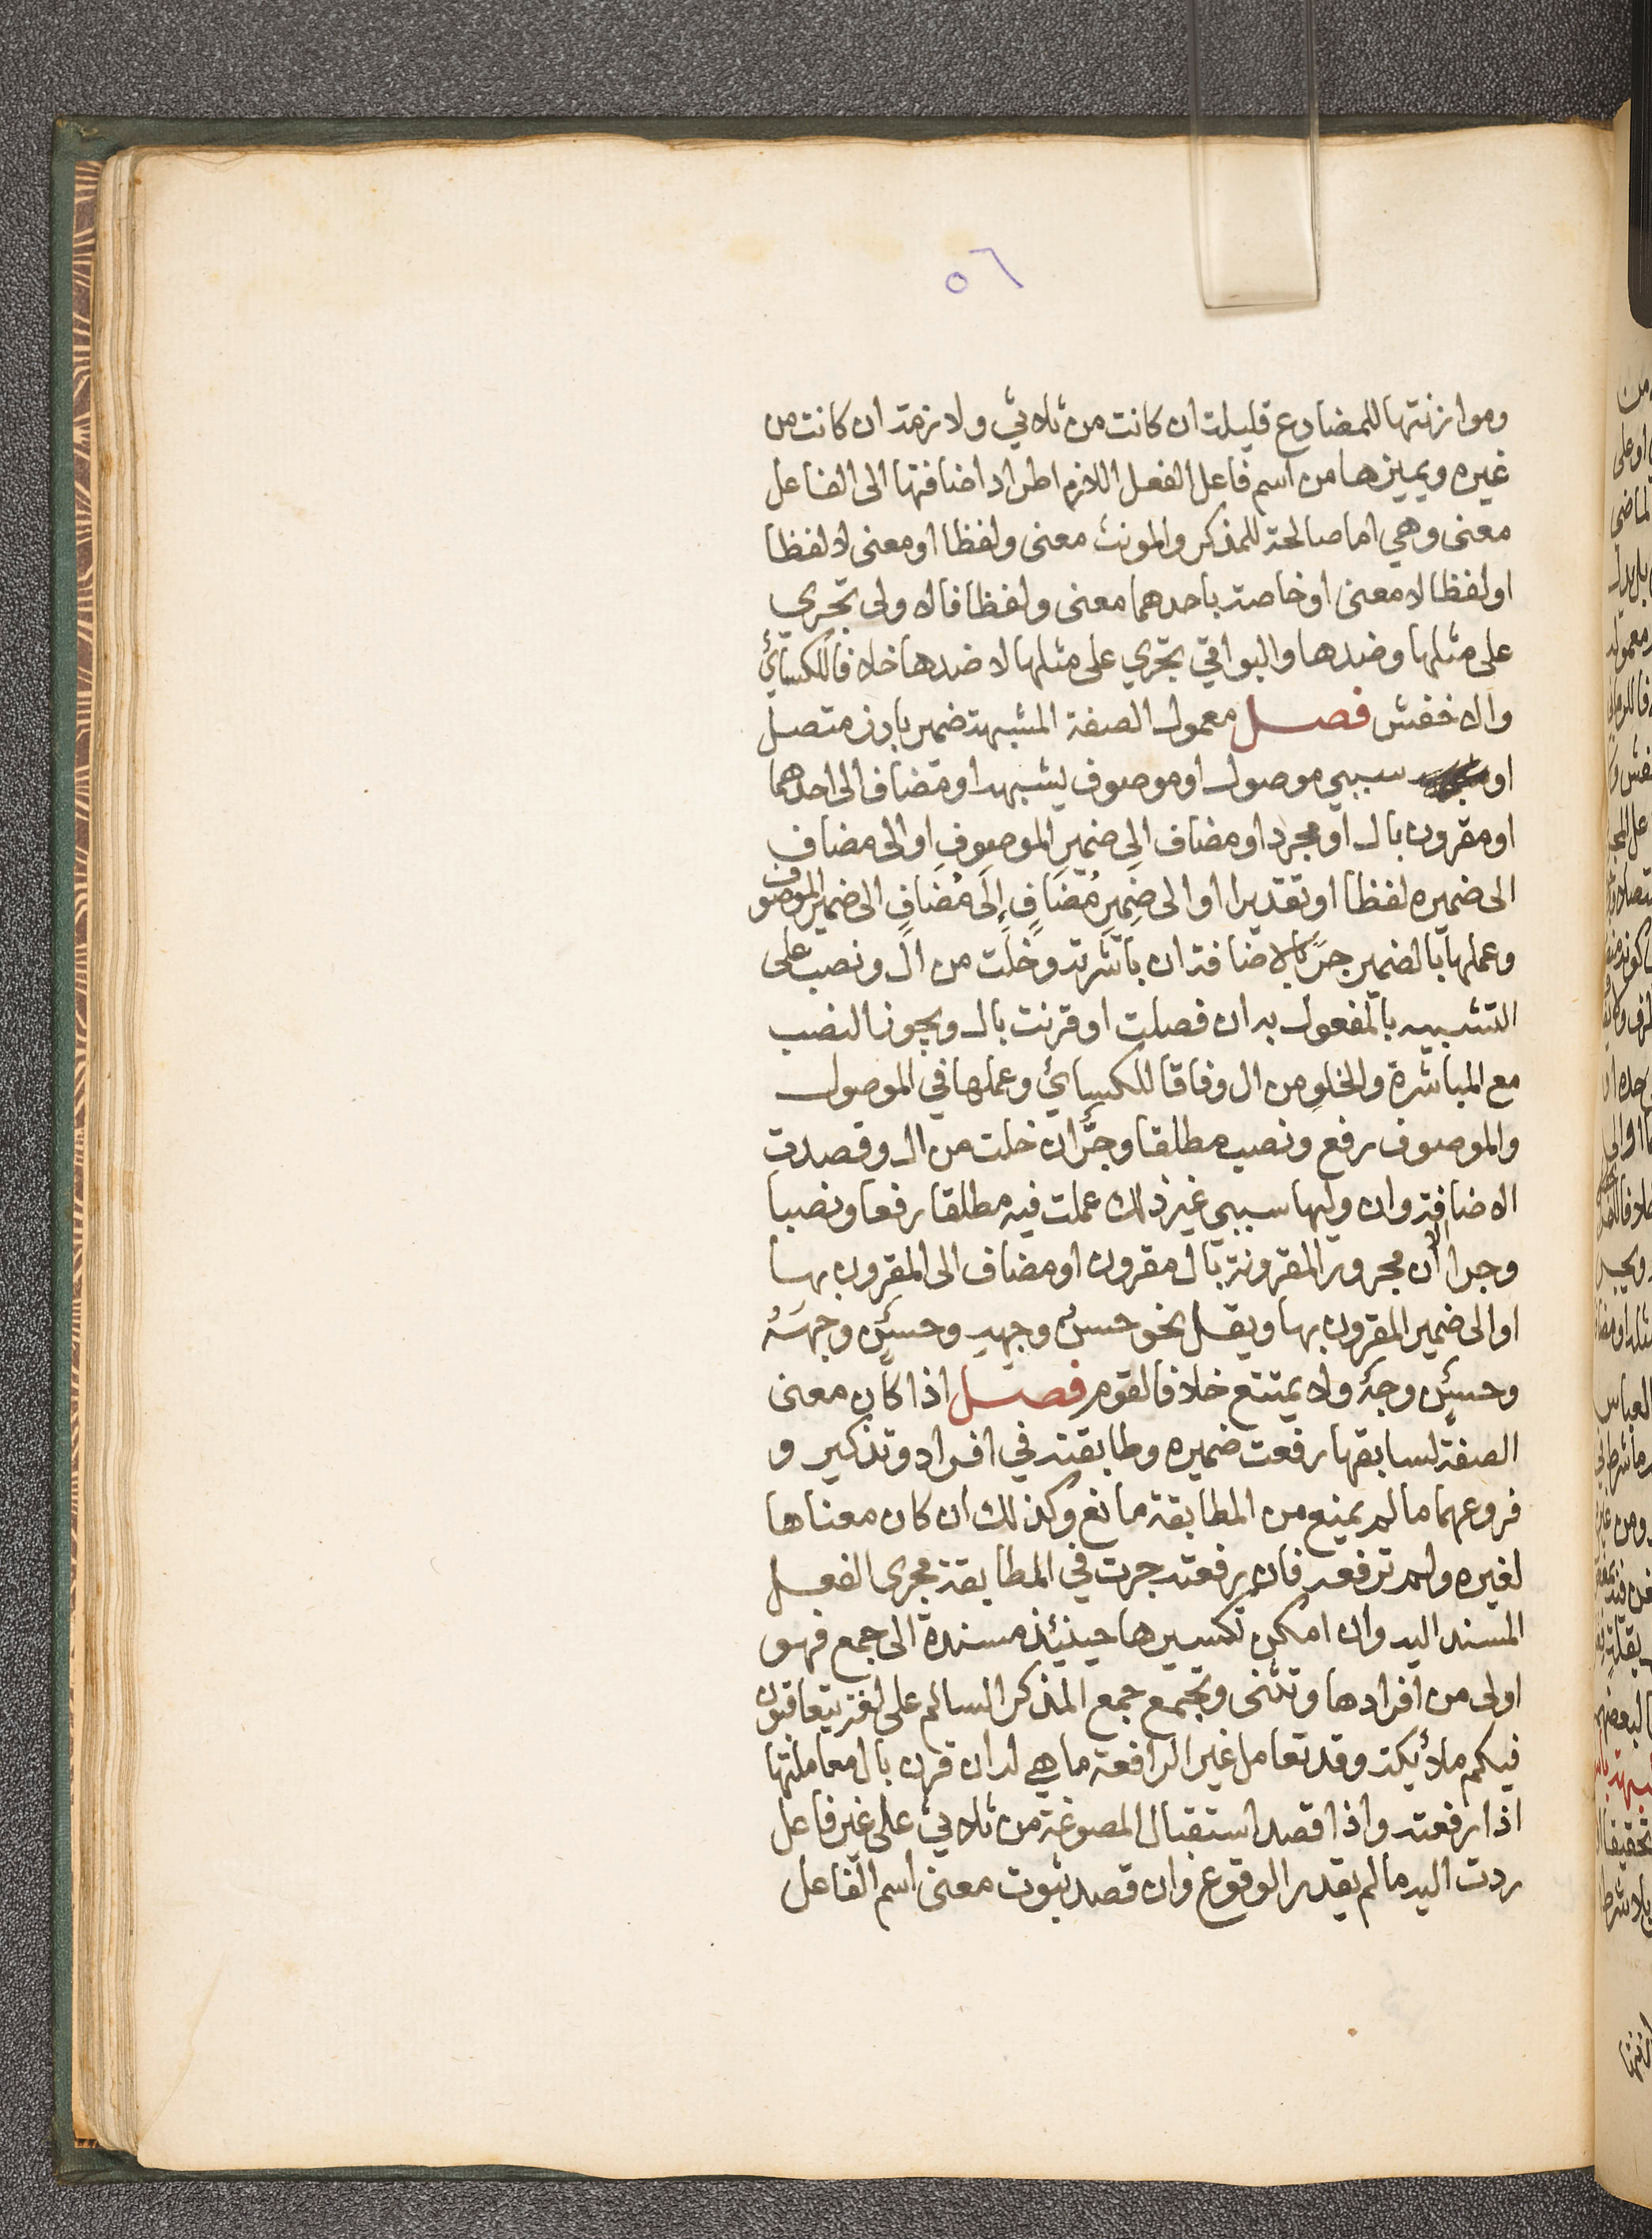 ٥٦
وموازنتها للمضارع قليلة ان كانت من ثلاثي ولازمة ان كانت من
غيره ويميزها من اسم فاعل الفعل اللازم اطراد اضافتها الى الفاعل
معنى وهي اما صالحة للمذكر والمونث معنى ولفظا او معنى لا لفظا
او لفظا لا معنى او خاصة باحدهما معنى ولفظا فالاولى تجري
على مثلها وضدها والبواقي تجري على مثلها لا ضدها خلافا للكسائي
والاخفش فصل معمول الصفة المشبهة ضمير بارز متصل
او سببي موصول او موصوف يشبهه او مضاف الى احدهما
او مقرون بال او مجرد او مضاف الى ضميرِ الموصوفِ او الى مضاف
الى ضميره لفظا او تقديرا او الى ضميرِ مُضافٍ إلَى مُضافٍ الى ضمير الموصوف
وعملها بالضمير جرٌ بالاضافة ان باشرته وخلت من ال ونصب على
التشبيه بالمفعول به ان فصلت او قرنت بال ويجوز النصب
مع المباشرة والخلوِ من ال وفاقا للكسائي وعملها في الموصول
والموصوف رفع ونصب مطلقا وجرٌّ ان خلت من ال وقصدت
الاضافة وان وليها سببي غير ذلك عملت فيه مطلقا رفعا ونصبا
وجرا الا ان مجرور المقرونة بال مقرون او مضاف الى المقرون بها
او الى ضمير المقرون بها ويقل نحو حسنُ وجهِهِ وحسنٌ وجهَهُ
وحسنٌ وجهٌ ولا يمتنع خلافا لقوم فصل اذا كان معنى
الصفة لسابقها رفعت ضميره وطابقته في افراد وتذكير و
فروعهما ما لم يمنع من المطابقة مانع وكذلك ان كان معناها
لغيره ولم ترفعه فان رفعته جرت في المطابقة مجرى الفعل
المسند اليه وان امكن تكسيرها حينئذ مسندة الى جمع فهو
اولى من افرادها وتثنى وتجمع جمع المذكر السالم على لغة يتعاقبون
فيكم ملائكة وقد تعامل غير الرافعة ما هي له ان قرن بال معاملتها
اذا رفعته واذا قصد استقبال المصوغة من ثلاثي على غير فاعل
ردت اليه ما لم يقدر الوقوع وان قصد ثبوت معنى اسم الفاعل